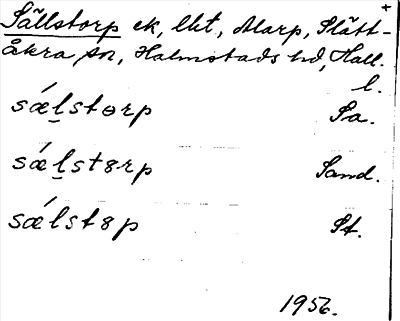 +
Sällstorp ek, lht, Marp, Slätt-
åkra sn, Halmstads hd, Hall.
l.
sǽl̠stɵrp Sa.
sǽl̠st8rp Sand.
sǽlst8p St.
1956.